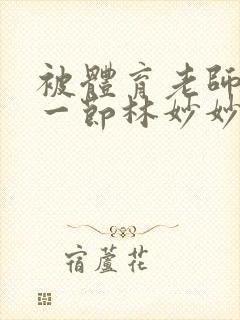 被體育老師
一節林妙妙
宿蘆花